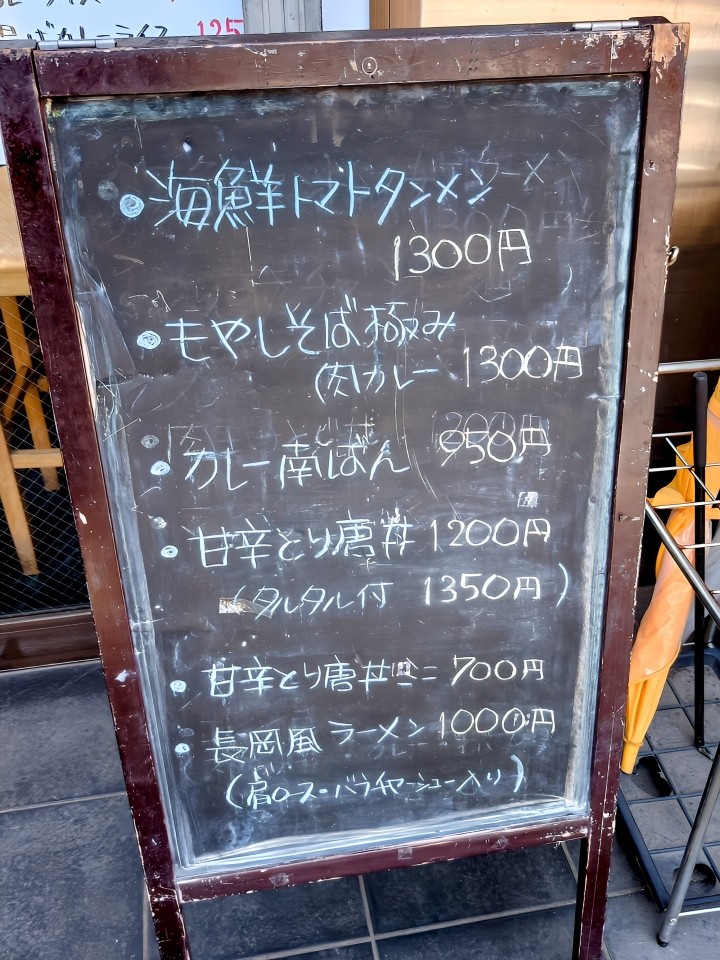 ばカレーライス 125
・海鮮トマトタンメン
1300円
・もやしそば極み
(肉カレー 1300円
・カレー南ばん 950円
・甘辛とり唐丼 1200円
(タルタル付 1350円)
・甘辛とり唐丼ミニ 700円
・長岡風ラーメン 1000円
(肩ロース・バラチャーシュー入り)